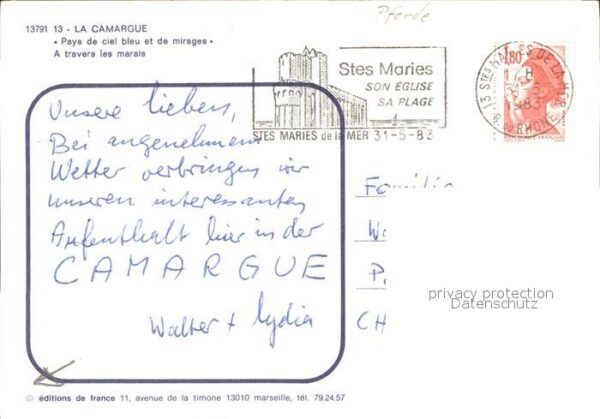 Pferde
13791 13 - LA CAMARGUE
« Pays de ciel bleu et de mirages »
A travers les marais
Stes Maries
SON ÉGLISE
SA PLAGE
STES MARIES de la MER 31-5-83
1,80
Unsere lieben,
Bei angenehmem
Wetter verbringen wir
unseren interessanten
Aufenthalt hier in der
CAMARGUE
Walter + Lydia
Famili
CH
privacy protection
Datenschutz
© éditions de france 11, avenue de la timone 13010 marseille, tél. 79.24.57